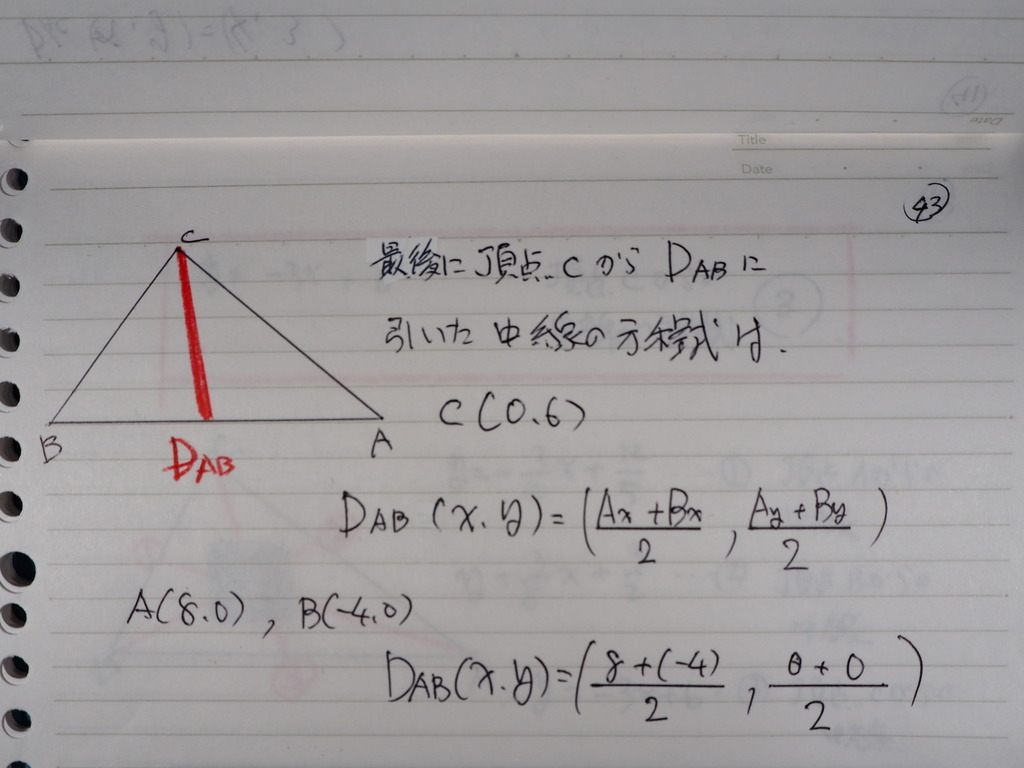 Title
Date
43
最後に頂点.CからDABに
引いた中線の方程式は.
C(0.6)
C
B
A
DAB
DAB(x.y)=(Ax+Bx/2, Ay+By/2)
A(8.0), B(-4.0)
DAB(x.y)=(8+(-4)/2, 0+0/2)